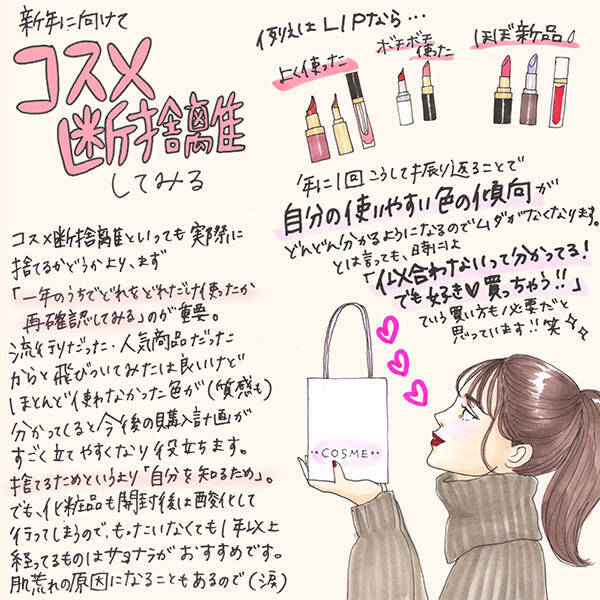 新年に向けて
コスメ
断捨離
してみる
例えばLIPなら…
よく使った
ボチボチ
使った
ほぼ新品
年に1回こうして振り返ることで
自分の使いやすい色の傾向が
どんどん分かるようになるのでムダがなくなります。
とは言っても、時には
「似合わないって分かってる!
でも好き♡買っちゃう!!」
ていう買い方も必要だと
思っています!!笑
コスメ断捨離といっても実際に
捨てるかどうかより、まず
「一年のうちでどれをどれだけ使ったか
再確認してみる」のが重要。
流行りだった・人気商品だった
からと飛びついてみたは良いけど
ほとんど使わなかった色が(質感も)
分かってくると今後の購入計画が
すごく立てやすくなり役立ちます。
捨てるためというより「自分を知るため」。
でも、化粧品も開封後は酸化して
行ってしまうので、もったいなくても1年以上
経ってるものはサヨナラがおすすめです。
肌荒れの原因になることもあるので(涙)
••COSME••